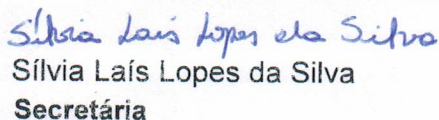 Sílvia Laís Lopes da Silva
Sílvia Laís Lopes da Silva
Secretária